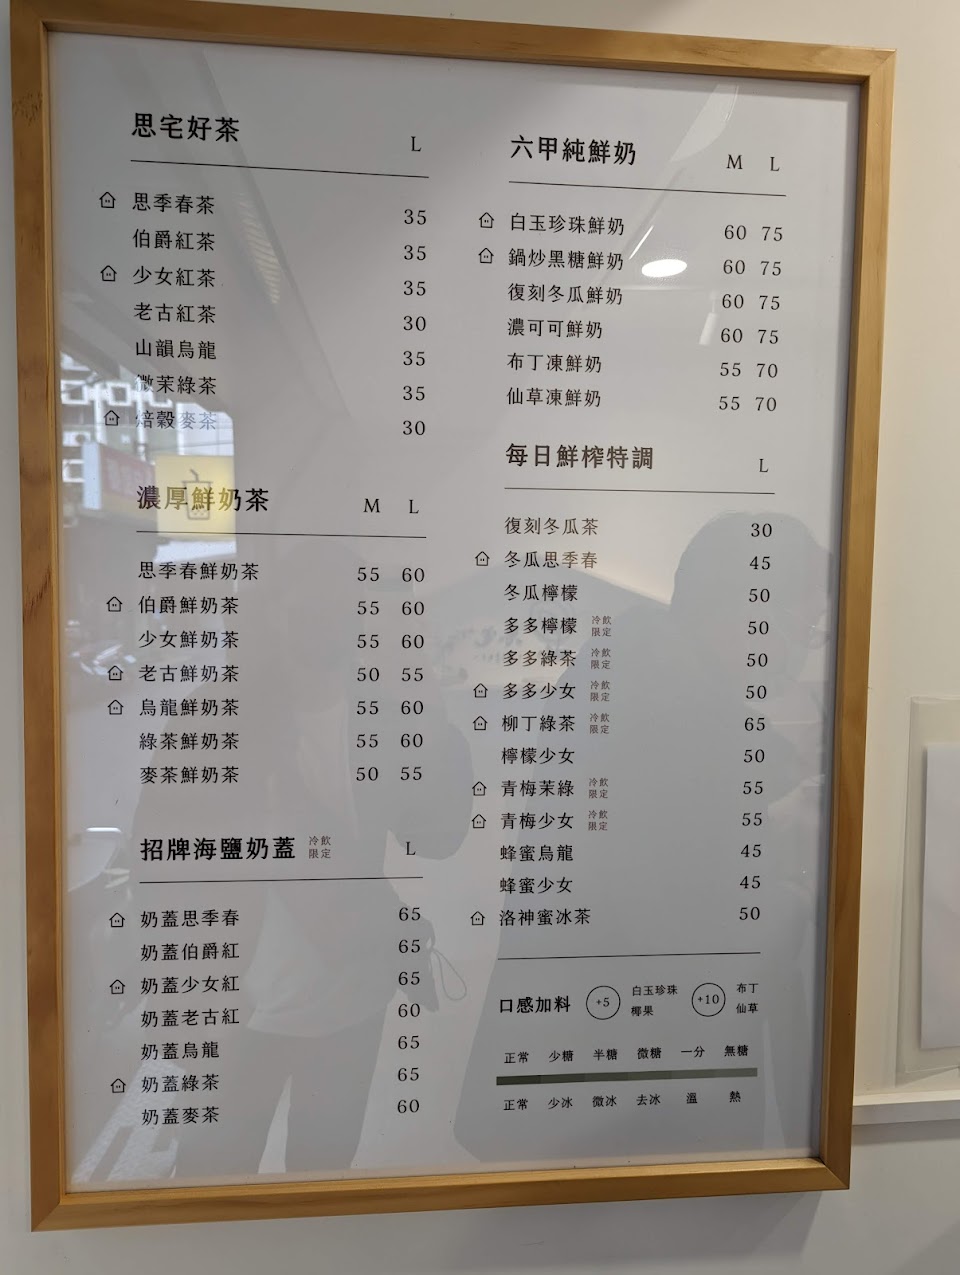 思宅好茶 L
思季春茶 35
伯爵紅茶 35
少女紅茶 35
老古紅茶 30
山韻烏龍 35
微茉綠茶 35
焙穀麥茶 30
濃厚鮮奶茶 M L
思季春鮮奶茶 55 60
伯爵鮮奶茶 55 60
少女鮮奶茶 55 60
老古鮮奶茶 50 55
烏龍鮮奶茶 55 60
綠茶鮮奶茶 55 60
麥茶鮮奶茶 50 55
招牌海鹽奶蓋 冷飲限定 L
奶蓋思季春 65
奶蓋伯爵紅 65
奶蓋少女紅 65
奶蓋老古紅 60
奶蓋烏龍 65
奶蓋綠茶 65
奶蓋麥茶 60
六甲純鮮奶 M L
白玉珍珠鮮奶 60 75
鍋炒黑糖鮮奶 60 75
復刻冬瓜鮮奶 60 75
濃可可鮮奶 60 75
布丁凍鮮奶 55 70
仙草凍鮮奶 55 70
每日鮮榨特調 L
復刻冬瓜茶 30
冬瓜思季春 45
冬瓜檸檬 50
多多檸檬 冷飲限定 50
多多綠茶 冷飲限定 50
多多少女 冷飲限定 50
柳丁綠茶 冷飲限定 65
檸檬少女 50
青梅茉綠 冷飲限定 55
青梅少女 冷飲限定 55
蜂蜜烏龍 45
蜂蜜少女 45
洛神蜜冰茶 50
口感加料 +5 白玉珍珠 椰果 +10 布丁 仙草
正常 少糖 半糖 微糖 一分 無糖
正常 少冰 微冰 去冰 溫 熱